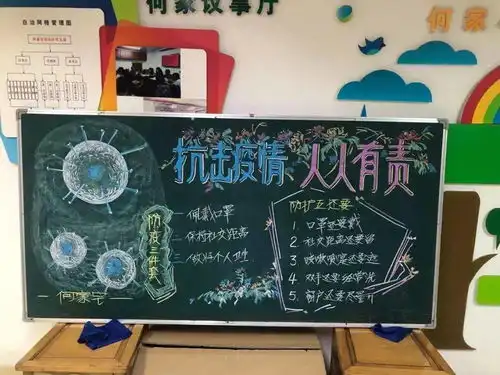 何家议事厅
何家
自治网格管理图
抗击疫情 人人有责
防疫三件套
一佩戴口罩
二保持社交距离
三做好个人卫生
防护五还要
1. 口罩还要戴
2. 社交距离还要留
3. 咳嗽喷嚏还要遮
4. 双手还要经常洗
5. 窗户还要尽量开